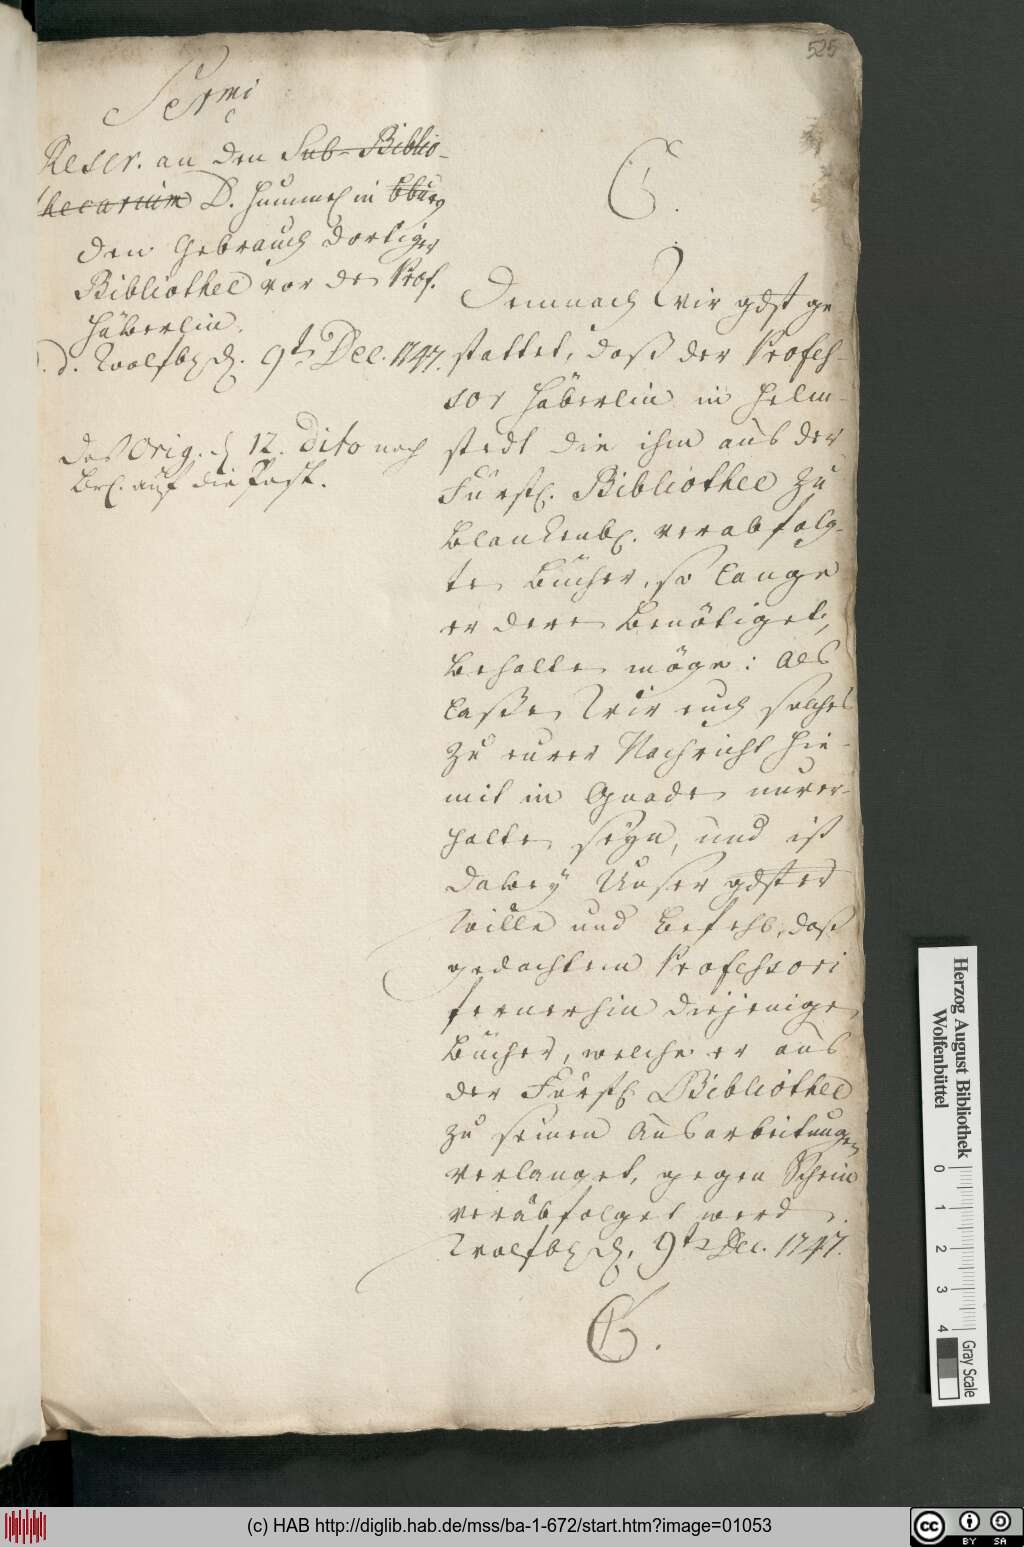 525
Sermi
Rescr. an den Sub-Biblio-
thecarium D. Hummel in Bburg
den Gebrauch dortiger
Bibliothec vor de Prof.
Häberlin.
d. d. Wolfb. d. 9t Dec. 1747.
das Orig. d 12. dito nach
Brl. auf die Post.
C.
Demnach Wir gdst ge
stattet, daß der Profes-
sor Häberlin in Helm-
stedt die ihm aus der
Fürstl. Bibliothec zu
Blankenb. verabfolg-
te Bücher, so lange
er dere benötiget,
behalte möge: Als
laße Wir euch solches
zu eurer Nachricht hie-
mit in Gnade unver-
halte seyn, und ist
dabey Unser gdster
Wille und Befehl, daß
gedachtem Professori
fernerhin diejenige
Bücher, welche er aus
der Fürstl. Bibliothec
zu seinen Ausarbeitungen
verlanget, gegen Schein
verabfolget werd.
Wolfb. d. 9t Dec. 1747.
C.
Herzog August Bibliothek
Wolfenbüttel
0 1 2 3 4
Gray Scale
(c) HAB http://diglib.hab.de/mss/ba-1-672/start.htm?image=01053
cc BY SA